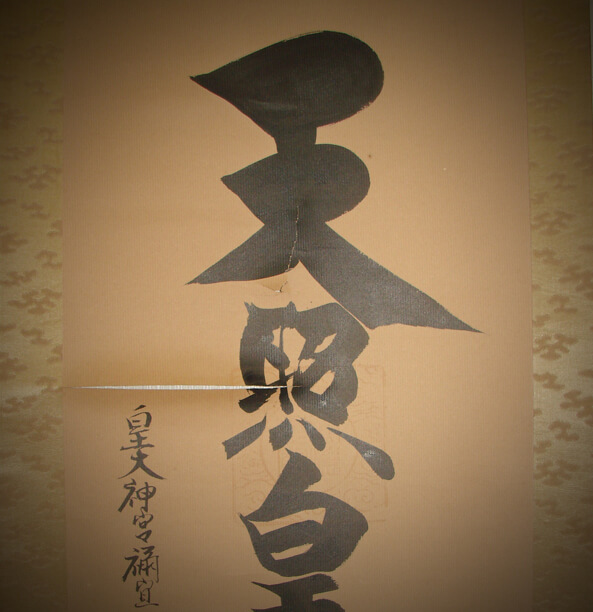 天照皇
皇大神宮禰宜